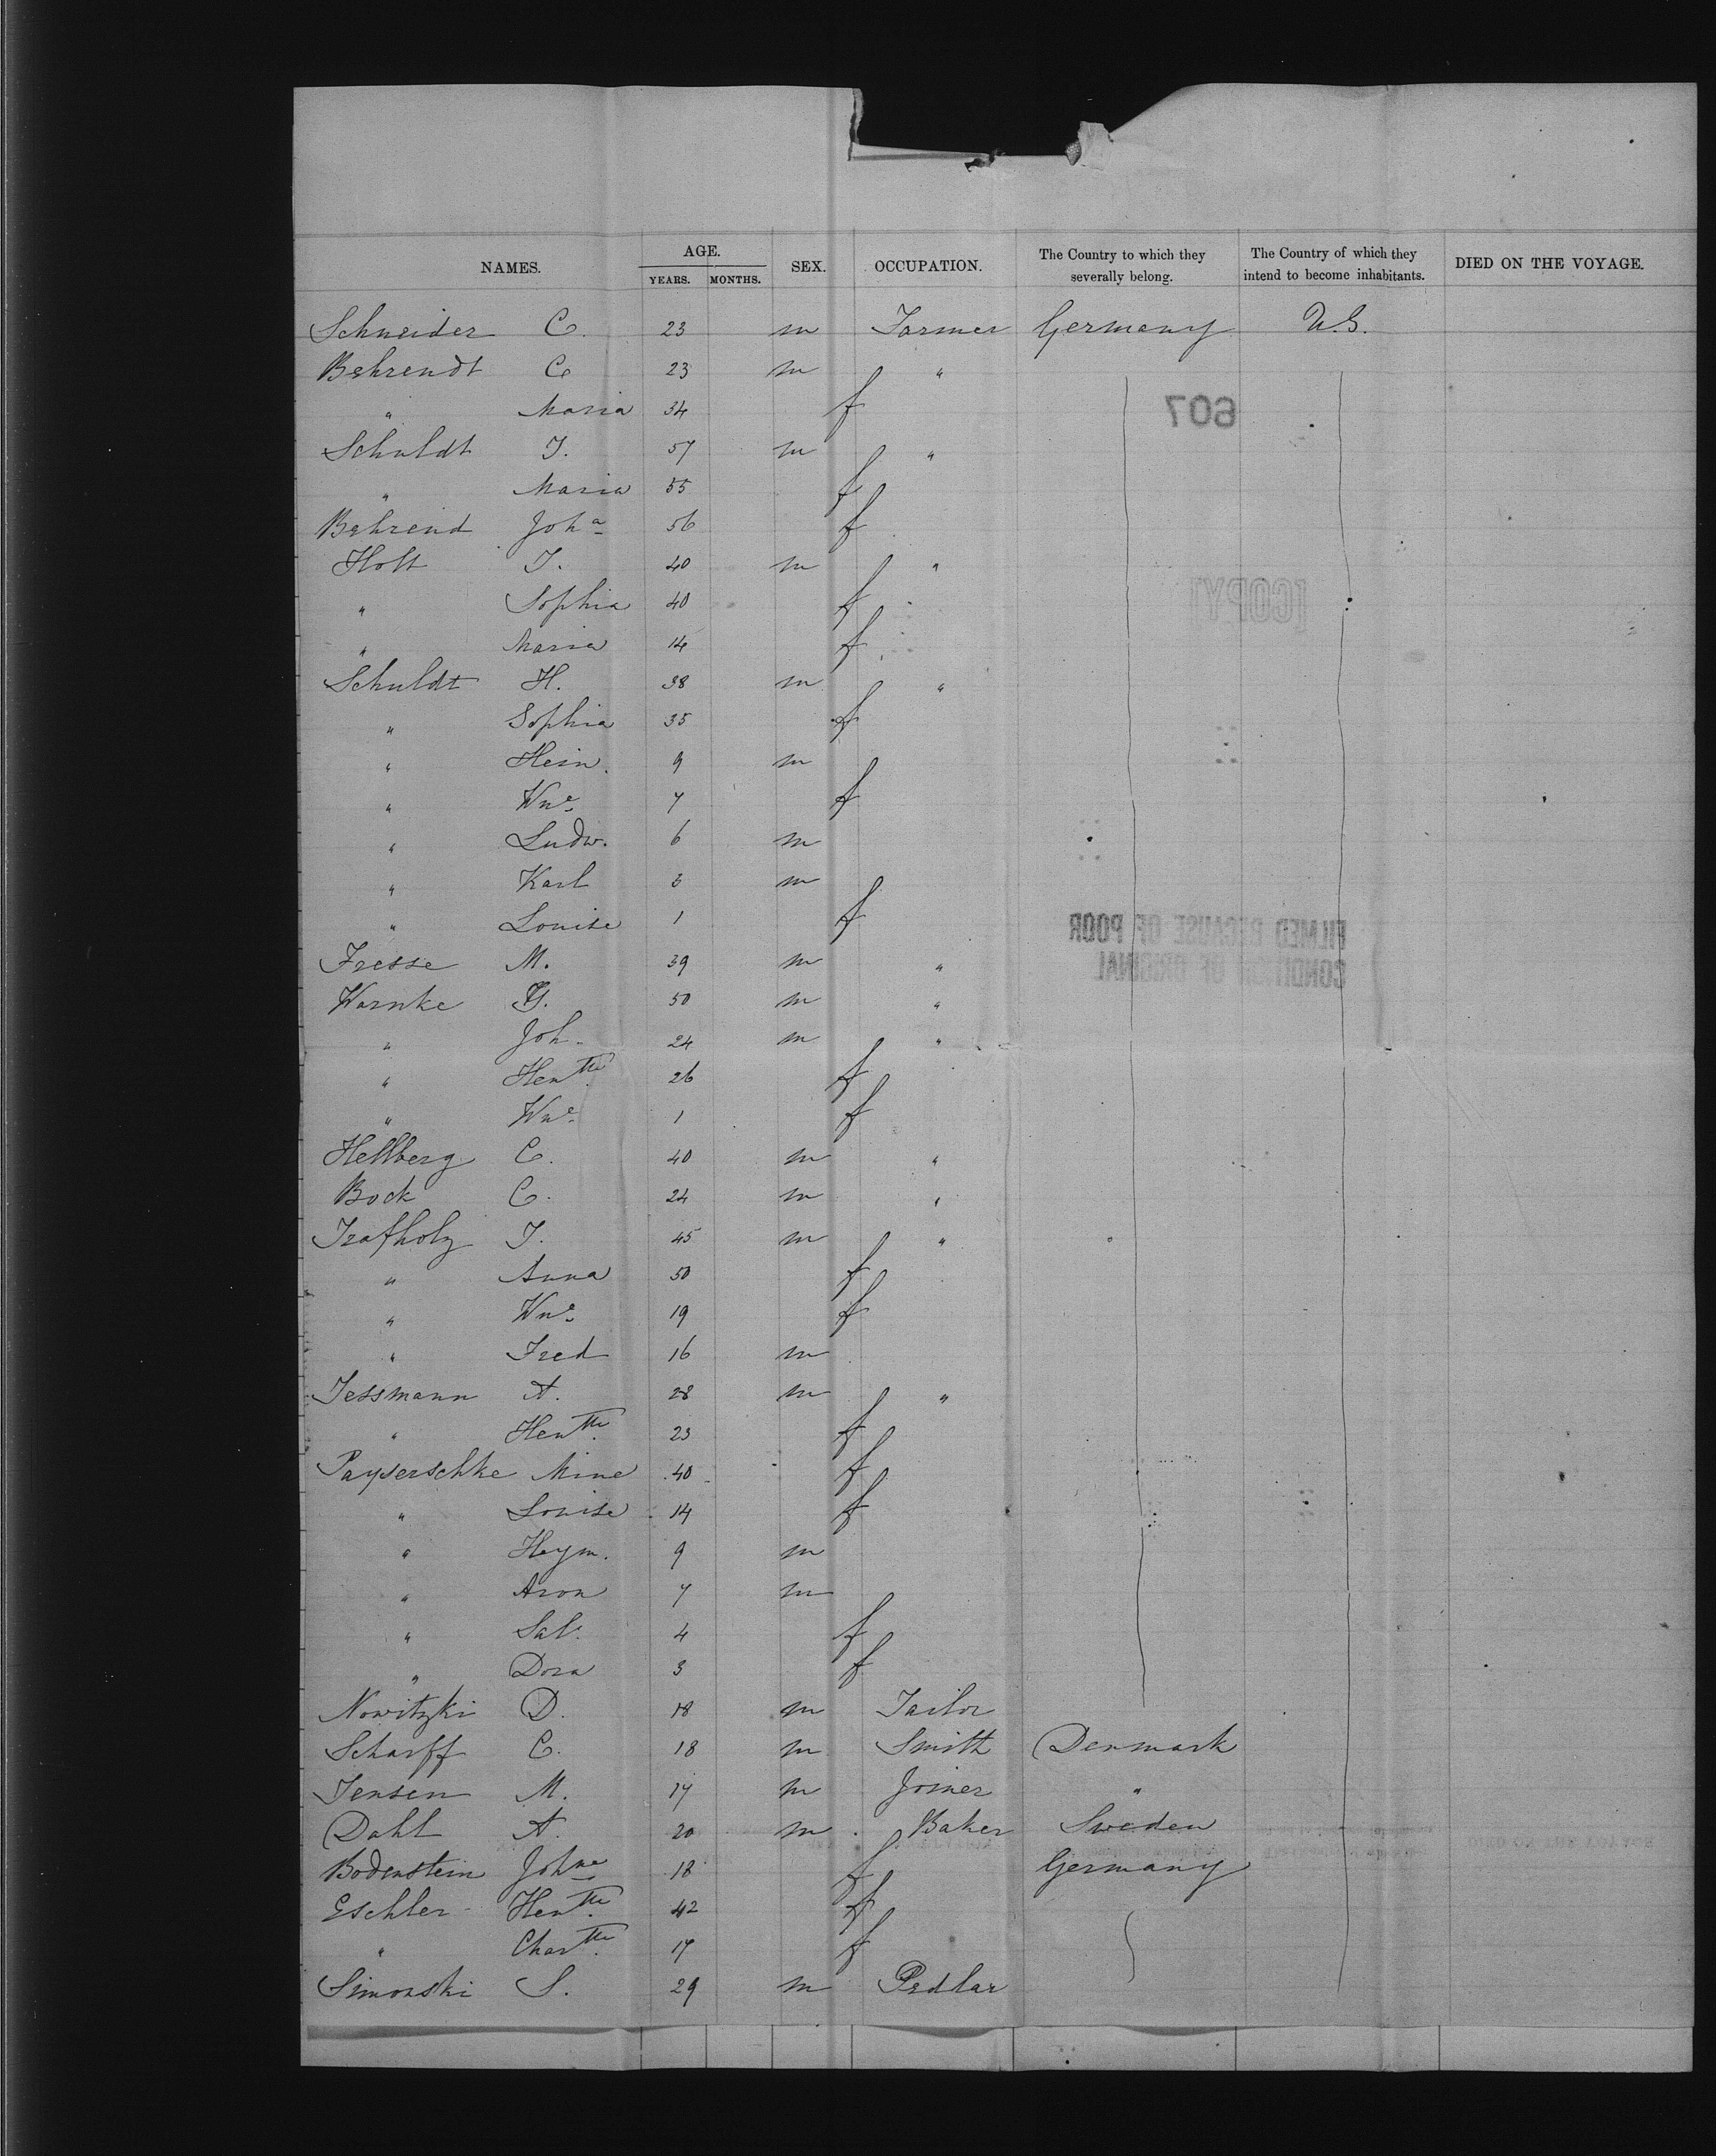 NAMES. AGE. SEX. OCCUPATION. The Country to which they severally belong. The Country of which they intend to become inhabitants. DIED ON THE VOYAGE.
YEARS. MONTHS.
Schneider C. 23 m Farmer Germany U.S.
Behrendt C 23 m "
" Maria 34 f
607
Schuldt J. 57 m "
" Maria 55 f
Behrend Joha 56 f
Holt J. 40 m "
" Sophia 40 f
[COPY]
" Maria 14 f
Schuldt H. 38 m "
" Sophia 35 f
" Hein. 9 m
" Wne 7 f
" Ludw. 6 m
" Karl 3 m
" Louise 1 f
FILMED BECAUSE OF POOR
CONDITION OF ORIGINAL
Fresse M. 39 m "
Warnke G. 50 m "
" Joh. 24 m "
" Hentte 26 f
" Wne 1 f
Hellberg C. 40 m "
Bock C. 24 m "
Trafholz J. 45 m "
" Anna 50 f
" Wne 19 f
" Fred 16 m
Jessmann A. 28 m "
" Hentte 23 f
Payserschke Mine 40 f
" Louise 14 f
" Heym. 9 m
" Aron 7 m
" Sal. 4 f
" Dora 3 f
Nowitzki D. 18 m Tailor
Scharff C. 18 m Smith Denmark
Jensen M. 17 m Joiner "
Dahl A. 20 m Baker Sweden
Bodenstein Johne 18 f Germany
Eschler Hentte 42 f
" Chartte 17 f
Simonski S. 29 m Pedlar